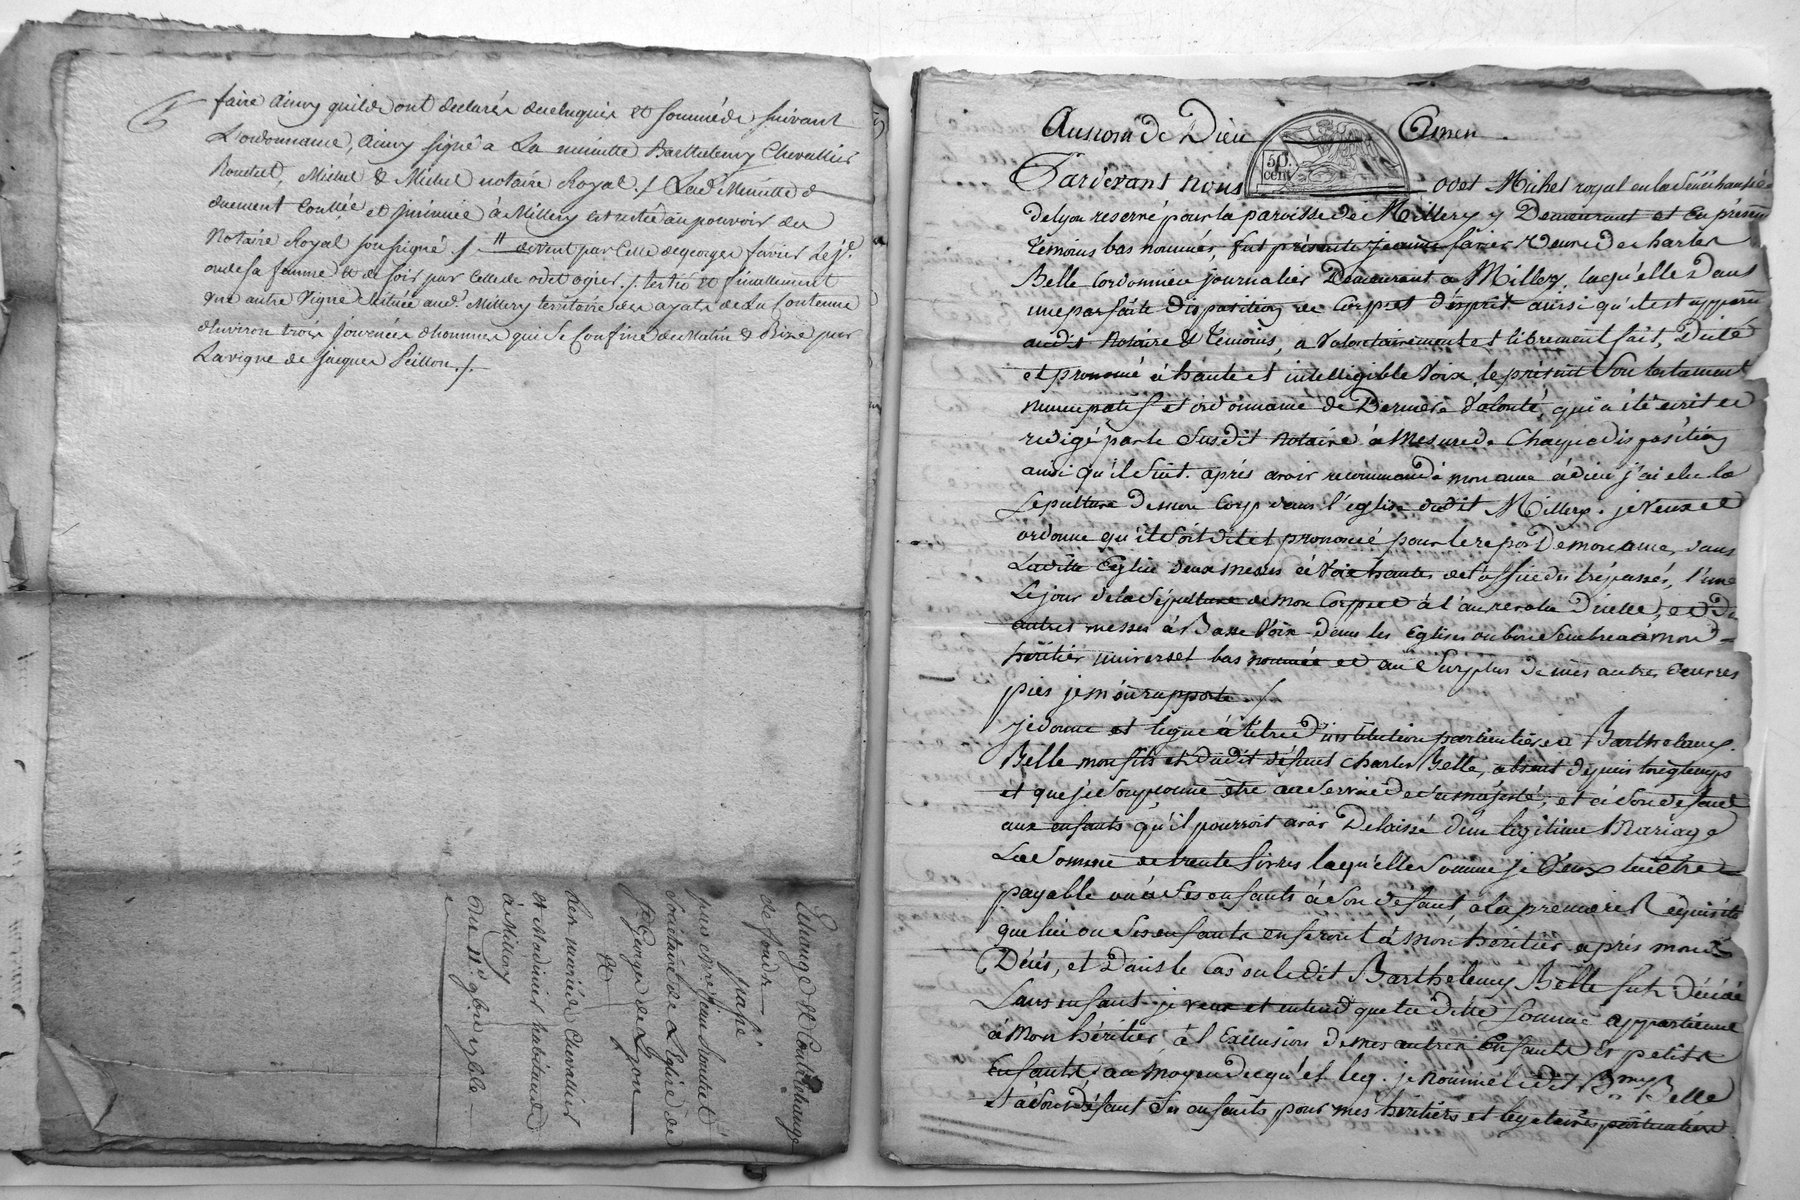 faire ainsy quils ont declarés de enquis et sommés suivant
L'ordonnance, ainsy signé a La minutte Barthelemy Chevallier
Rouchet, Michel & Michel notaire Royal ./ Lad. Minutte
duement Coullée et insinuée à Millery est restée au pouvoir du
Notaire Royal soussigné ./ # devent par Celle de georges favier
ou de sa femme et de soir par Celle de odet ogier ./ tertio et finallement
une autre Vigne scituée aud. Millery territoire des ayats de la Contenue
d'environ trois journées d'hommes qui se Confine de Matin & Bize par
La vigne de Jacques Peillon ./.
Echange & Contrechange
de fonds
passé
par
de L'Eglise de
St George de Lyon
&
les mariés Chevallier
et Mathieu habitants
à Millery
Du 11e 9bre
Au nom de Dieu Amen
50. cent
Pardevant nous odet Michel royal en la Sénéchaussée
de Lyon reservé pour la paroisse de Millery y Demeurant et En présence
témoins bas nommés, fut présente jeanne favier Veuve de charles
Belle Cordonnier journalier Demeurant a Millery, laqu'elle Dans
une parfaite Disposition de Corps et d'esprit ainsi qu'il est apparu
audit Notaire & témoins, a Volontairement et librement fait, Dicté
et prononcé à haute et intelligible Voix, le présent Son testament
nuncupatif et ordonnance de Derniere Volonté, qui a été ecrit et
redigé par le Susdit notaire à Mesure de Chaque disposition
ainsi qu'il suit. après avoir recommandé mon ame à dieu j'ai elu la
Sepulture de mon Corp dans l'église dudit Millery. je Veux et
ordonne qu'il soit dit et prononcé pour le repos De mon ame, dans
Ladite Eglise deux messes à Voix hautes de l'office des trépassés, l'une
Le jour de la Sépulture de mon Corps et à l'an revolu d'icelle, et
autres messes à Basse Voix Dans les Eglises ou bon Semblera à mon
héritier universel bas nommée et au Surplus de mes autres oeuvres
pies je m'en rapporte ./
je donne et legue à titre D'institution particuliere à Barthelemy
Belle mon fils et dudit défunt charles Belle, absent depuis longtemps
et que je Soupçonne être au Service de sa majesté, et à Son défaut
aux enfants qu'il pourroit avoir Delaissé d'un legitime Mariage
La Somme de trente livres laqu'elle Somme je Veux lui être
payable ou à Ses enfants à Son défaut à la premiere Requisition
que lui ou Ses enfants en feront à mon héritier après mon
Décès, et Dans le Cas ou ledit Barthelemy Belle fut Décédé
Sans enfant je veux et entend que la ditte Somme appartienne
à Mon héritier, à l'Exclusion de mes autres Enfants & petits
Enfants. au Moyen duqu'el leg. je Nomme ledit Bmy Belle
et à Son défaut Ses enfants pour mes héritiers et legataires particuliers